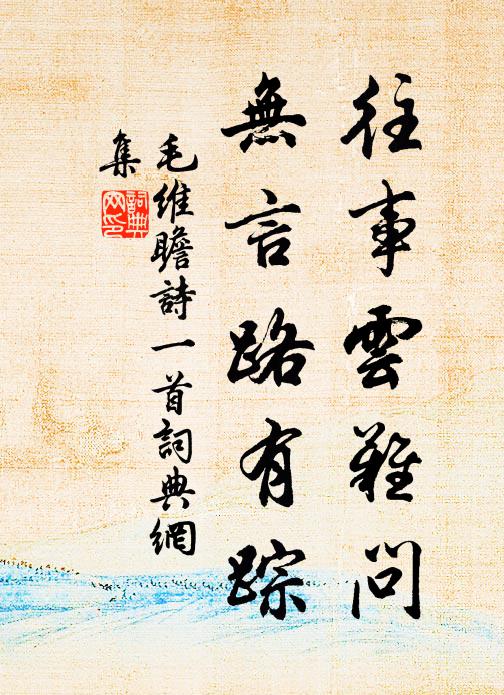 往事雲難問
無言路有踪
毛維瞻詩一首詞典網
集
詞典
网印